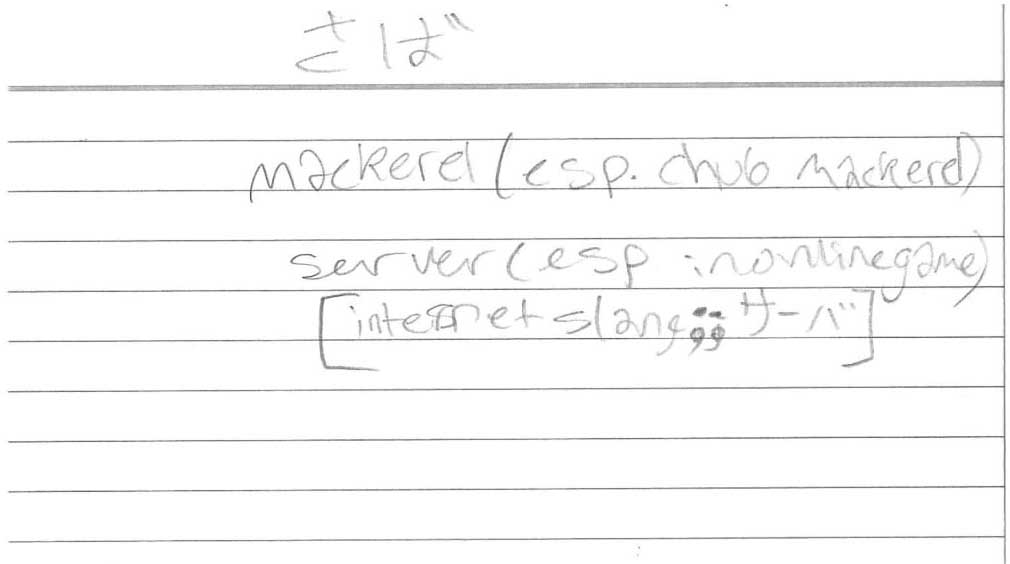 さば
mackerel (esp. chub mackerel)
server (esp in online game)
[internet slang;; サーバ]